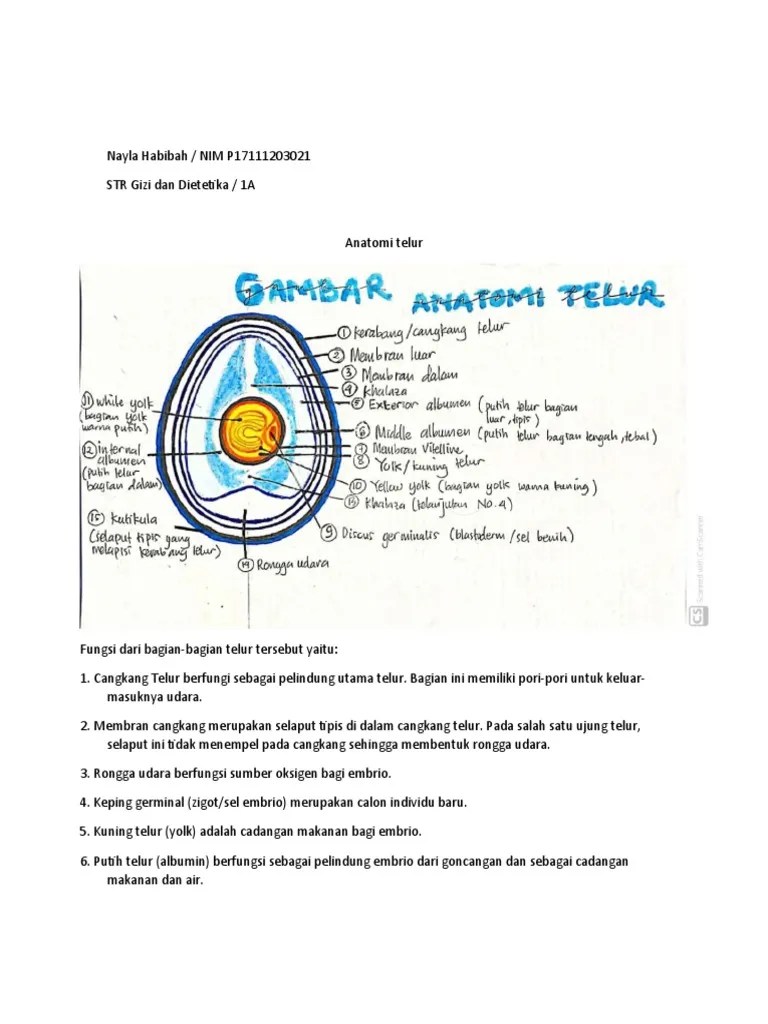 Nayla Habibah / NIM P17111203021
STR Gizi dan Dietetika / 1A
Anatomi telur
GAMBAR ANATOMI TELUR
① Kerabang/cangkang telur
② Membran luar
③ Membran dalam
④ Khalaza
⑤ Exterior albumen (putih telur bagian
luar, tipis)
⑥ Middle albumen (putih telur bagian tengah, tebal)
⑦ Membran Vitelline
⑧ Yolk/kuning telur
⑩ Yellow yolk (bagian yolk warna kuning)
⑬ Khalaza (kelanjutan No.4)
⑨ Discus germinalis (blastoderm/sel benih)
⑪ while yolk
(bagian yolk
warna putih)
⑫ internal
albumen
(putih telur
bagian dalam)
⑮ Kutikula
(selaput tipis yang
melapisi kerabang telur)
⑭ Rongga udara
CS Scanned with CamScanner
Fungsi dari bagian-bagian telur tersebut yaitu:
1. Cangkang Telur berfungi sebagai pelindung utama telur. Bagian ini memiliki pori-pori untuk keluar-
masuknya udara.
2. Membran cangkang merupakan selaput tipis di dalam cangkang telur. Pada salah satu ujung telur,
selaput ini tidak menempel pada cangkang sehingga membentuk rongga udara.
3. Rongga udara berfungsi sumber oksigen bagi embrio.
4. Keping germinal (zigot/sel embrio) merupakan calon individu baru.
5. Kuning telur (yolk) adalah cadangan makanan bagi embrio.
6. Putih telur (albumin) berfungsi sebagai pelindung embrio dari goncangan dan sebagai cadangan
makanan dan air.